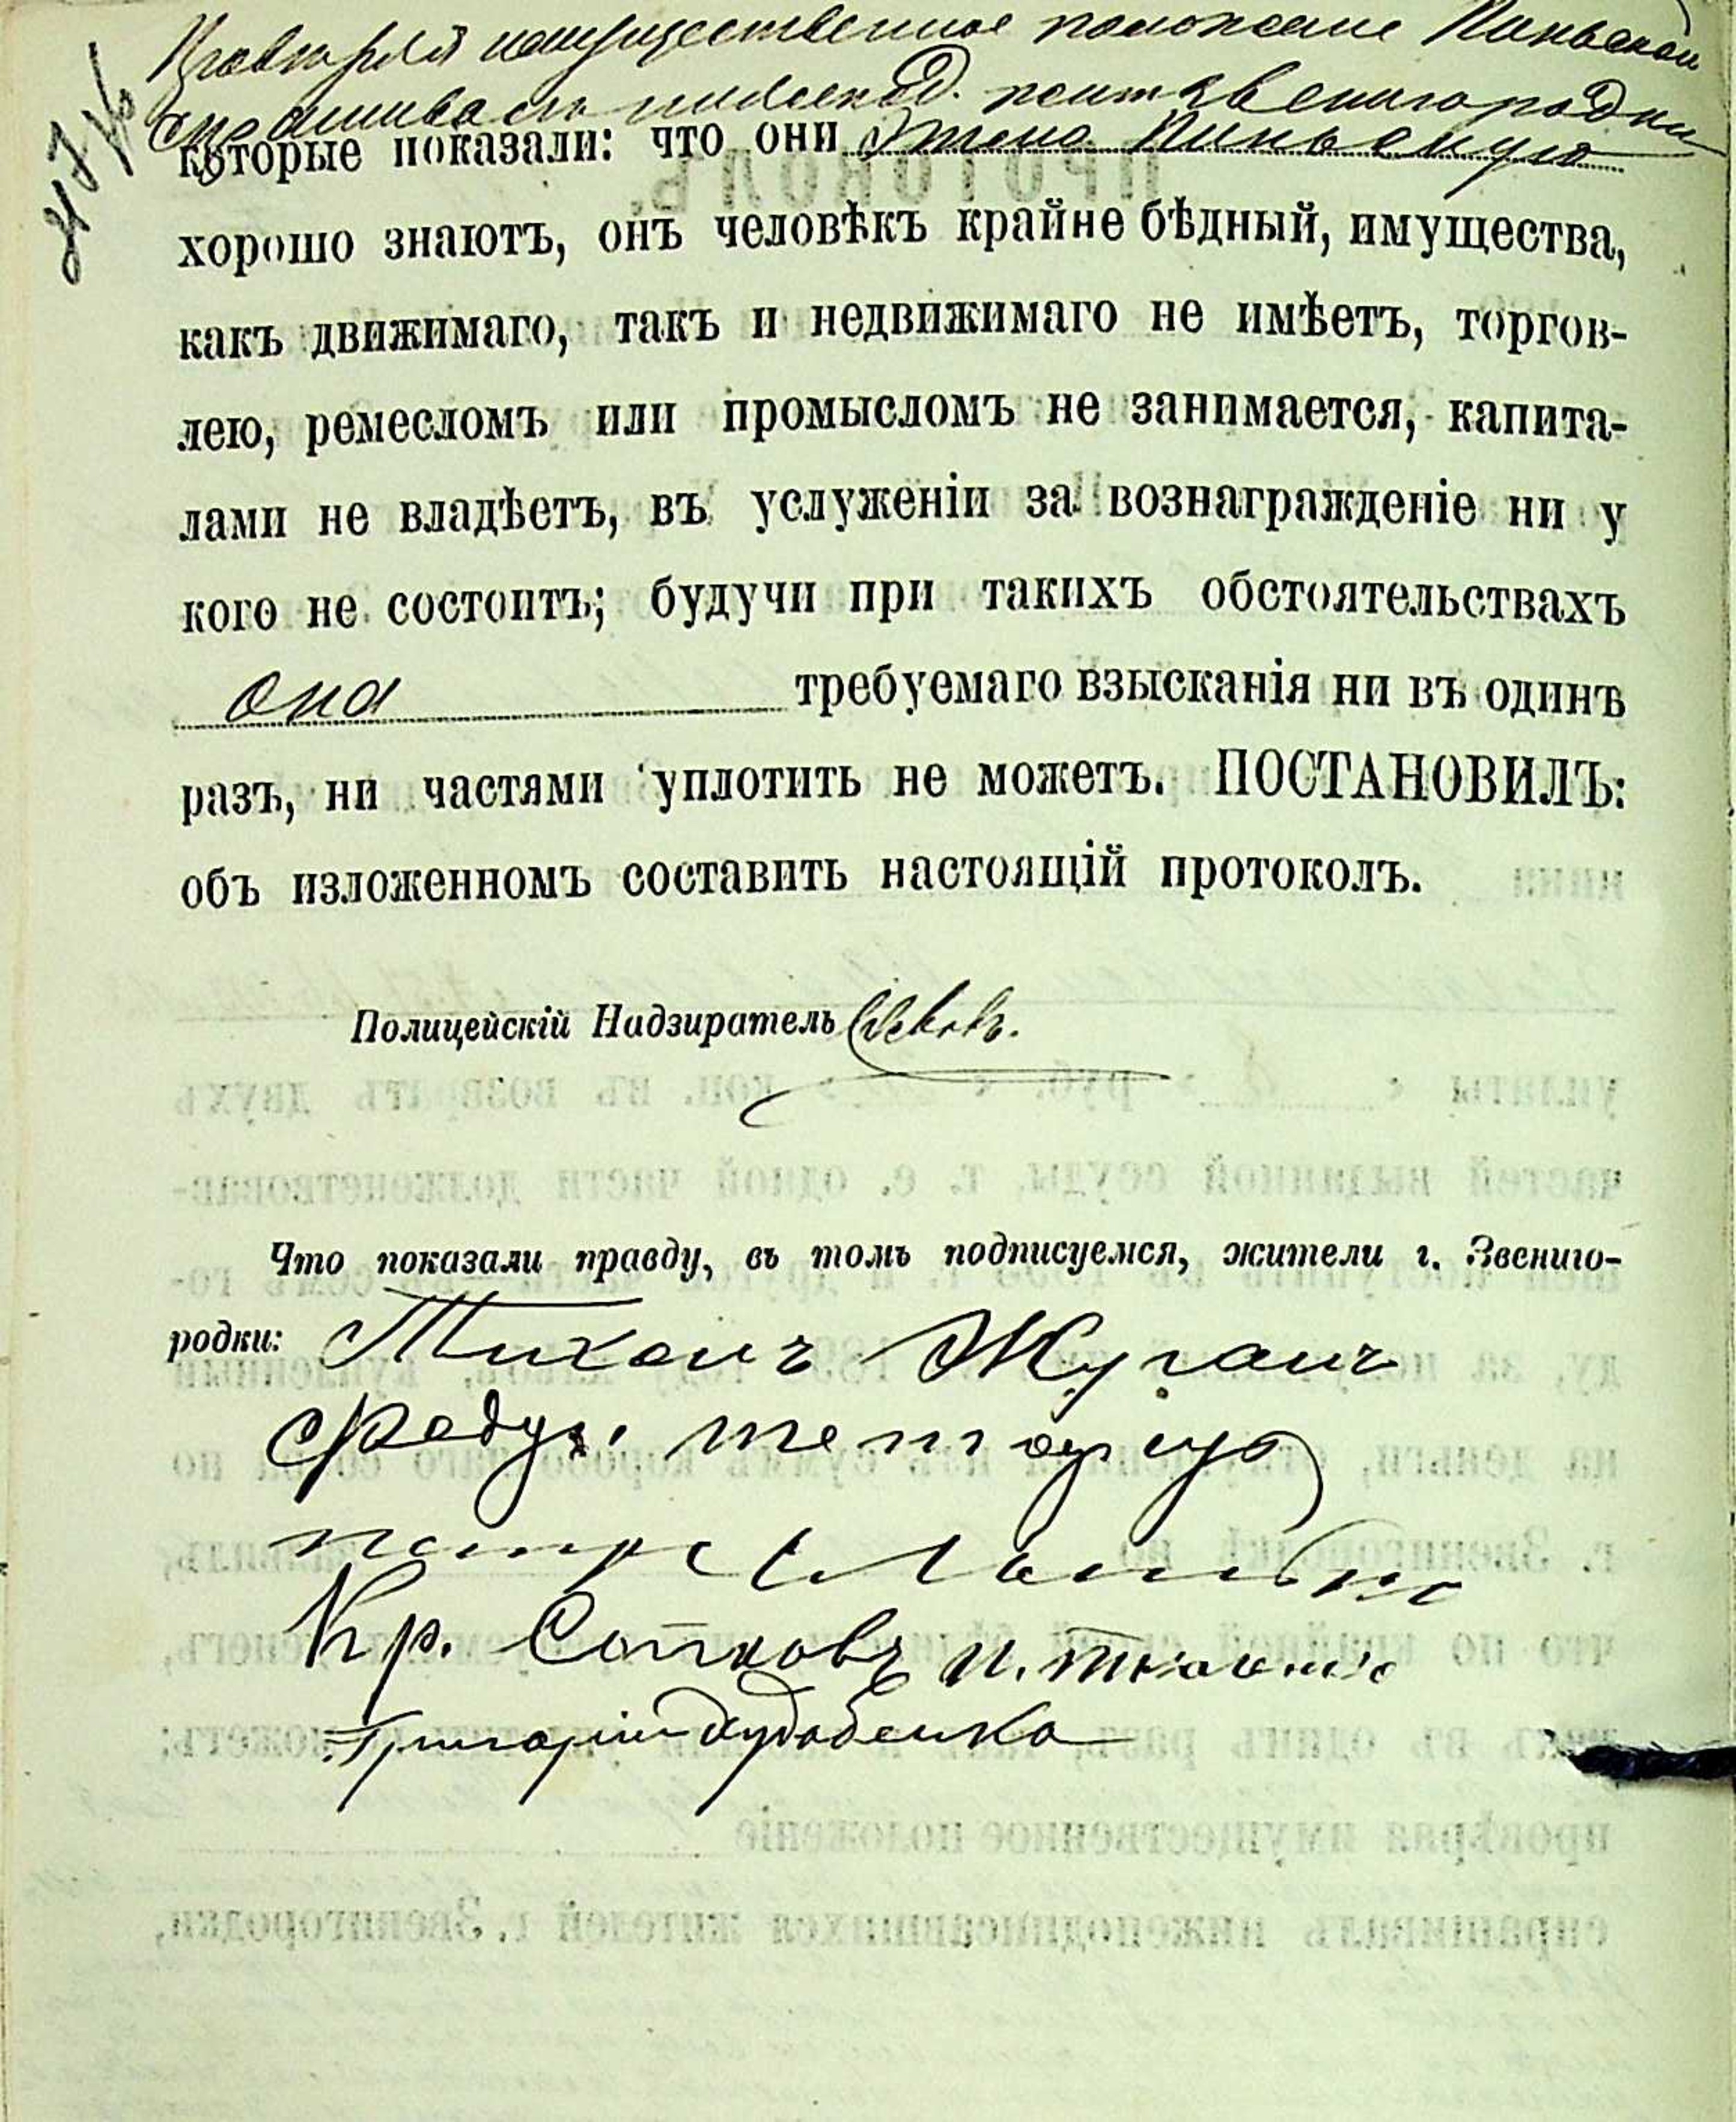 Провѣряя имущественное положеніе Пиньской
спрашивалъ нижепод. жит. г. Звенигородки
которые показали: что они Этена Пиньскую
хорошо знаютъ, онъ человѣкъ крайне бѣдный, имущества,
какъ движимаго, такъ и недвижимаго не имѣетъ, торгов-
лею, ремесломъ или промысломъ не занимается, капита-
лами не владѣетъ, въ услуженіи за вознагражденіе ни у
кого не состоитъ; будучи при такихъ обстоятельствахъ
она требуемаго взысканія ни въ одинъ
разъ, ни частями уплотить не можетъ. ПОСТАНОВИЛЪ:
объ изложенномъ составить настоящій протоколъ.
Полицейскій Надзиратель
Что показали правду, въ томъ подписуемся, жители г. Звениго-
родки: Тихонъ Журанъ
Кр. Сотковъ
Григорій Худобенко